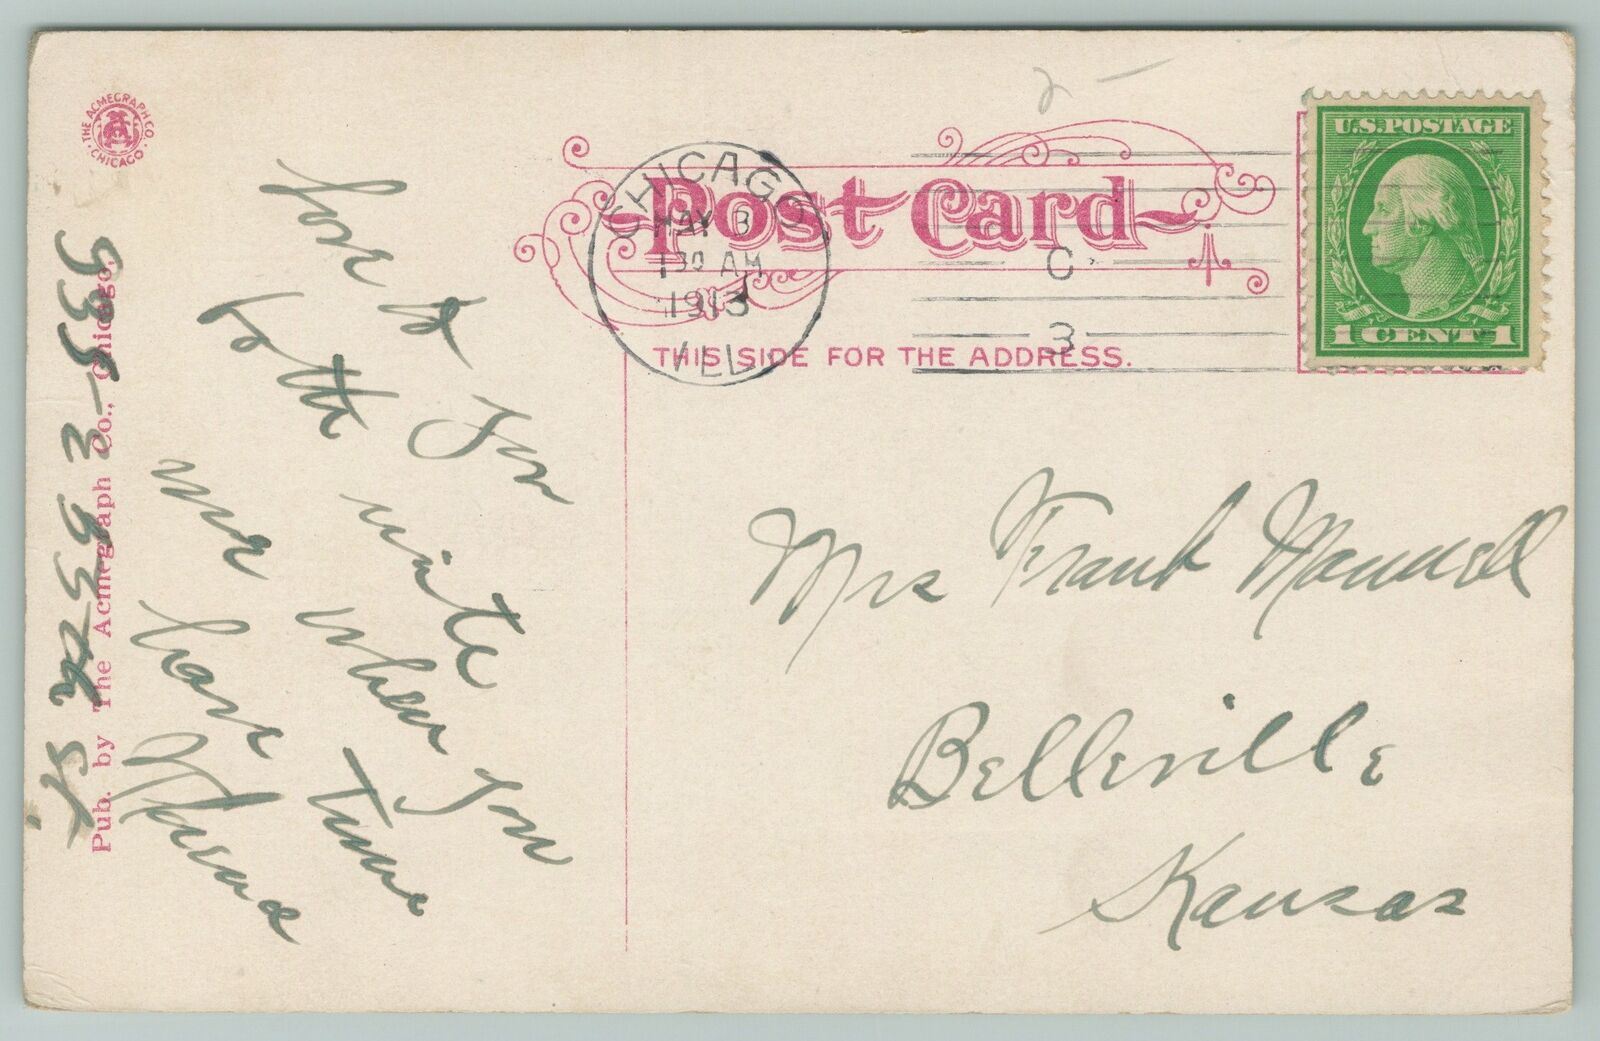 THE ACMEGRAPH CO.
CHICAGO.
Post Card
CHICAGO
MAY 3
1 30 AM
1913
ILL.
C
3
U.S. POSTAGE
1 CENT 1
THIS SIDE FOR THE ADDRESS.
Love to You
both write
me when You
have Time
Mrs Frank
Belleville
Kansas
Pub. by The Acmegraph Co., Chicago.
St.